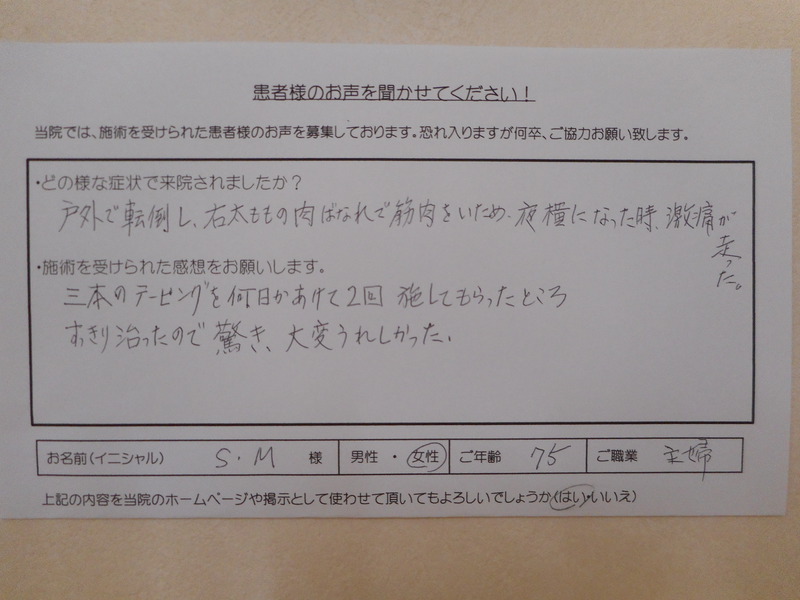 患者様のお声を聞かせてください！
当院では、施術を受けられた患者様のお声を募集しております。恐れ入りますが何卒、ご協力お願い致します。
・どの様な症状で来院されましたか？
戸外で転倒し、右太ももの肉ばなれで筋肉をいため、夜横になった時、激痛が走った。
・施術を受けられた感想をお願いします。
三本のテーピングを何日かあけて2回施してもらったところ
すっきり治ったので驚き、大変うれしかった。
お名前(イニシャル) S・M 様 男性・女性 ご年齢 75 ご職業 主婦
上記の内容を当院のホームページや掲示として使わせて頂いてもよろしいでしょうか(はい・いいえ)